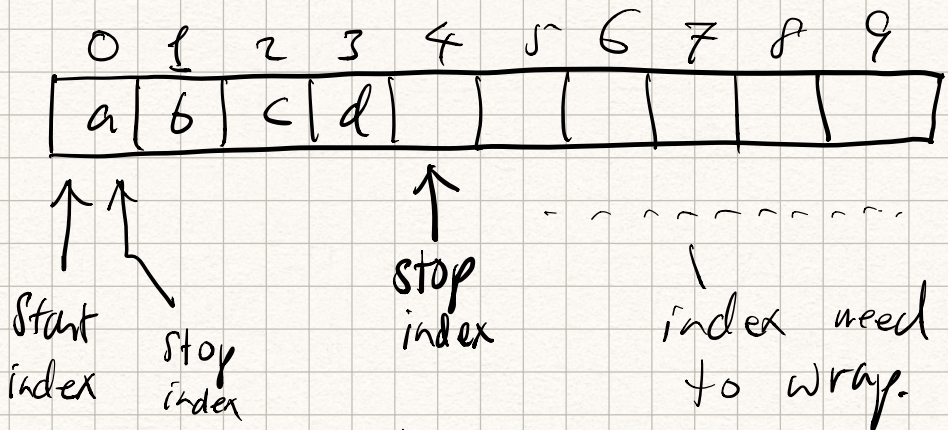 0 1 2 3 4 5 6 7 8 9
a b c d
start
index
stop
index
stop
index
index need
to wrap.